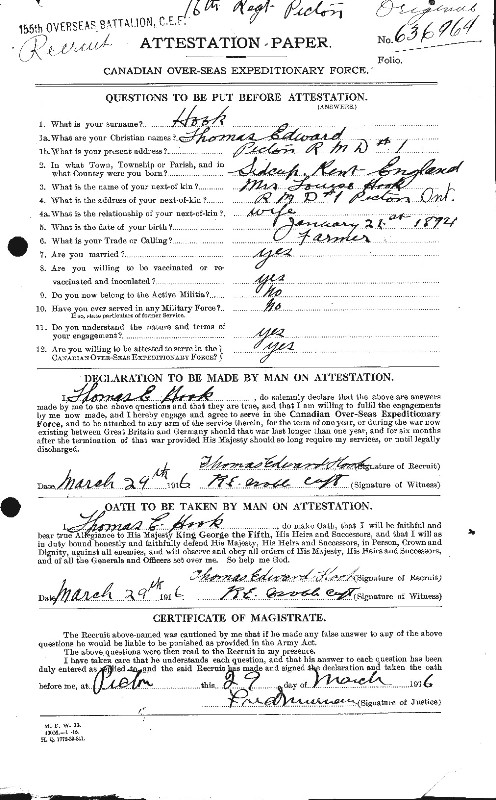 16th Regt Picton
Original
155th OVERSEAS BATTALION, C.E.F.
Recruit
ATTESTATION PAPER.
No. 636964
Folio.
CANADIAN OVER-SEAS EXPEDITIONARY FORCE.
QUESTIONS TO BE PUT BEFORE ATTESTATION.
(ANSWERS.)
1. What is your surname? Hook
1a. What are your Christian names? Thomas Edward
1b. What is your present address? Picton R M D # 1
2. In what Town, Township or Parish, and in
what Country were you born? Sidcup, Kent England
3. What is the name of your next-of-kin? Mrs Louise Hook
4. What is the address of your next-of-kin? R M D #1 Picton Ont.
4a. What is the relationship of your next-of-kin? wife
5. What is the date of your birth? January 21st 1894
6. What is your Trade or Calling? Farmer
7. Are you married? yes
8. Are you willing to be vaccinated or re-
vaccinated and inoculated? yes
9. Do you now belong to the Active Militia? No
10. Have you ever served in any Military Force? No
If so, state particulars of former Service.
11. Do you understand the nature and terms of
your engagement? yes
12. Are you willing to be attested to serve in the
CANADIAN OVER-SEAS EXPEDITIONARY FORCE? yes
DECLARATION TO BE MADE BY MAN ON ATTESTATION.
I, Thomas E Hook, do solemnly declare that the above are answers
made by me to the above questions and that they are true, and that I am willing to fulfil the engagements
by me now made, and I hereby engage and agree to serve in the Canadian Over-Seas Expeditionary
Force, and to be attached to any arm of the service therein, for the term of one year, or during the war now
existing between Great Britain and Germany should that war last longer than one year, and for six months
after the termination of that war provided His Majesty should so long require my services, or until legally
discharged.
Thomas Edward Hook (Signature of Recruit)
Date March 29th 1916 (Signature of Witness)
OATH TO BE TAKEN BY MAN ON ATTESTATION.
I, Thomas E Hook, do make Oath, that I will be faithful and
bear true Allegiance to His Majesty King George the Fifth, His Heirs and Successors, and that I will as
in duty bound honestly and faithfully defend His Majesty, His Heirs and Successors, in Person, Crown and
Dignity, against all enemies, and will observe and obey all orders of His Majesty, His Heirs and Successors,
and of all the Generals and Officers set over me. So help me God.
Thomas Edward Hook (Signature of Recruit)
Date March 29th 1916 (Signature of Witness)
CERTIFICATE OF MAGISTRATE.
The Recruit above-named was cautioned by me that if he made any false answer to any of the above
questions he would be liable to be punished as provided in the Army Act.
The above questions were then read to the Recruit in my presence.
I have taken care that he understands each question, and that his answer to each question has been
duly entered as replied to, and the said Recruit has made and signed the declaration and taken the oath
before me, at Picton this 29 day of March 1916
(Signature of Justice)
M. F. W. 23.